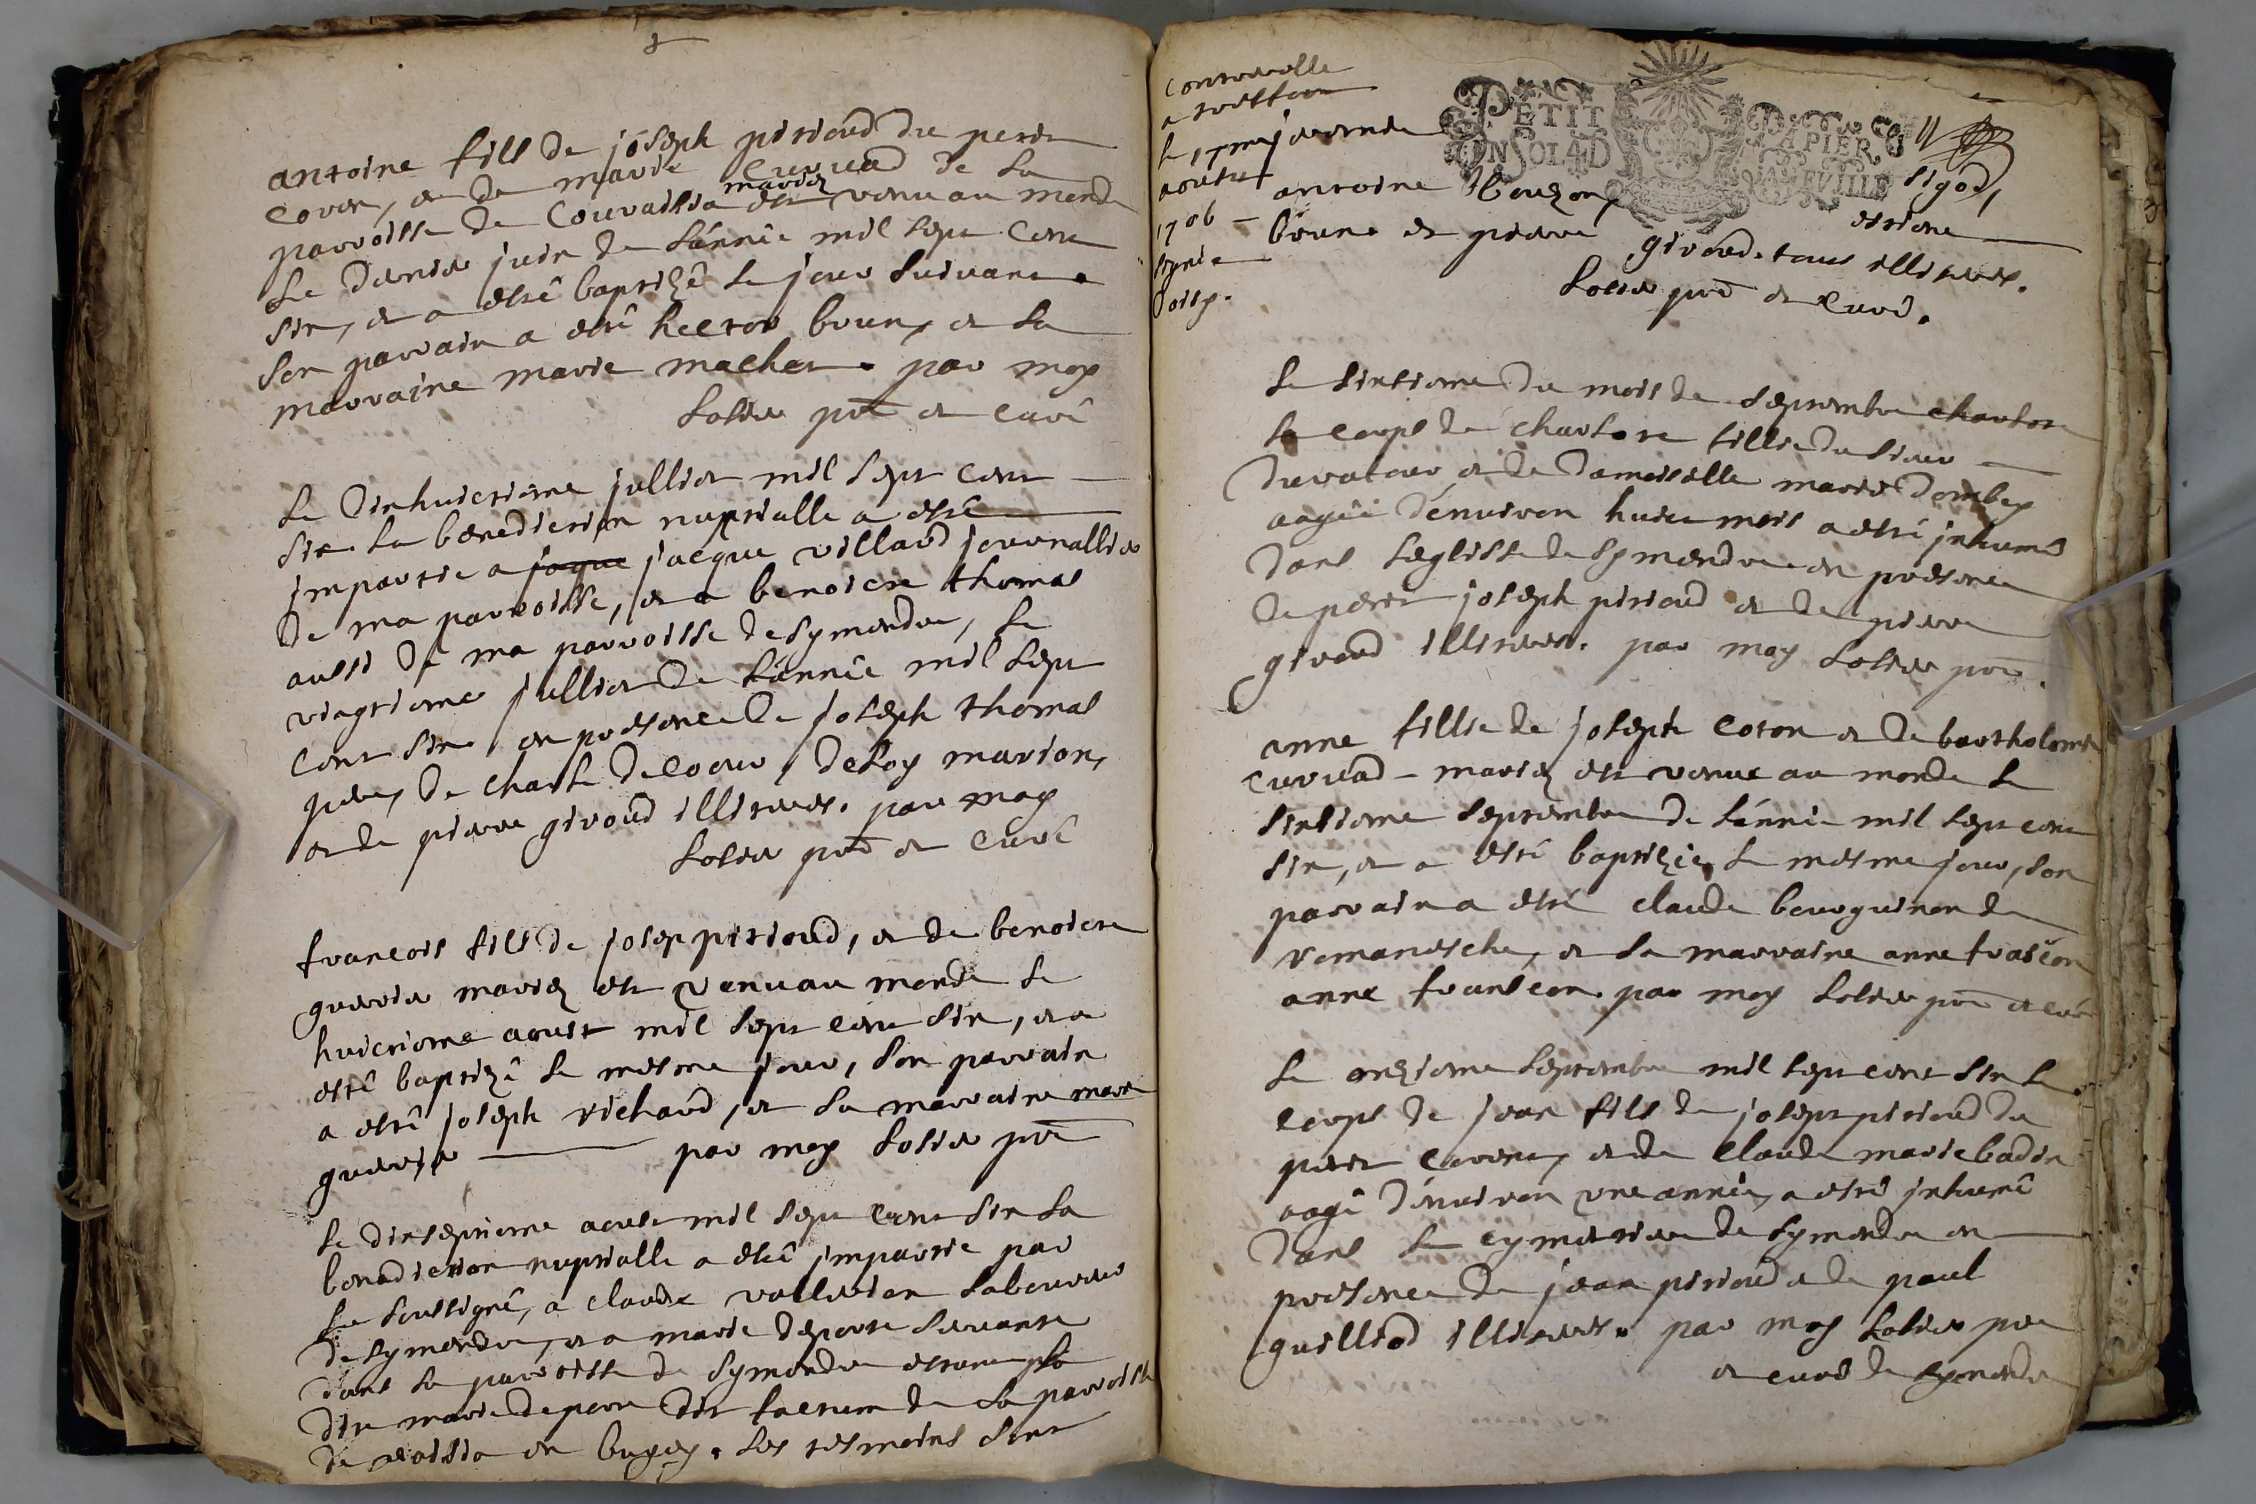 antoine fils de joseph pirioud du petit
coron, et de marie curvad de la
parroisse de Couraissia mariez est venu au monde
le dernier juin de l'année mil sept cent
six, et a esté baptizé le jour suivant.
son parrain a esté hector brun, et la
marraine marie machet. par moy
Solier pre et curé
le dixhuictieme jullier mil sept cent
six la benediction nuptialle a esté
impartie a jaque jacque villard journallier
de ma parroisse, et a benoiste thomas
aussi de ma parroisse de symandre, le
vingtieme jullier de l'année mil sept
cent six, en presence de joseph thomas
pere, de charle decoeur, deloy marion,
et de pierre giroud illiterez. par moy
Solier pre et curé
francois fils de josep pirioud, et de benoiste
guerrier mariez est venu au monde le
huictieme aoust mil sept cent six, et a
esté baptizé le mesme jour, son parrain
a esté joseph richard, et sa marraine marie
guerrier par moy Solier pre
le dixseptieme aoust mil sept cent six la
benediction nuptialle a esté impartie par
le soussigné, a claude vallerian laboureur
de symandre, et a marie deporte servante
dans la parroisse de symandre estant la
dite marie deporte de la parroisse
de en bugey. les tesmoins sont
controolle
a
le
aoust
1706
signé
PETIT PAPIER
UN SOL 4 D LA FEVILLE
antoine
brun et pierre giroud. tous illiterez.
Solier pre et curé.
le sixieme du mois de septembre charlote
le corps de charlote fillie du sieur
duvatour et de damoiselle marie dombey
aagée d'environ huict mois a esté inhumé
dans l'eglisse de symandre en presence
de petit joseph pirioud et de pierre
giroud illiterez. par moy Solier pre.
anne fillie de joseph coron et de bartholomie
curvad mariez est venue au monde le
sixieme septembre de l'année mil sept cent
six, et a esté baptiziée le mesme jour, son
parrain a esté claude bourguinon de
romanesche, et la marraine anne frascon
anne franscon par moy Solier pre et curé
le onzieme septembre mil sept cent six le
corps de jean fils de josept pirioud du
petit coron, et de claude marie badin
aagé d'environ une année, a esté inhumé
dans le cymetiere de symandre en
presence de jean pirioud et de paul
guilliod illiterez. par moy Solier pre
et curé de symandre